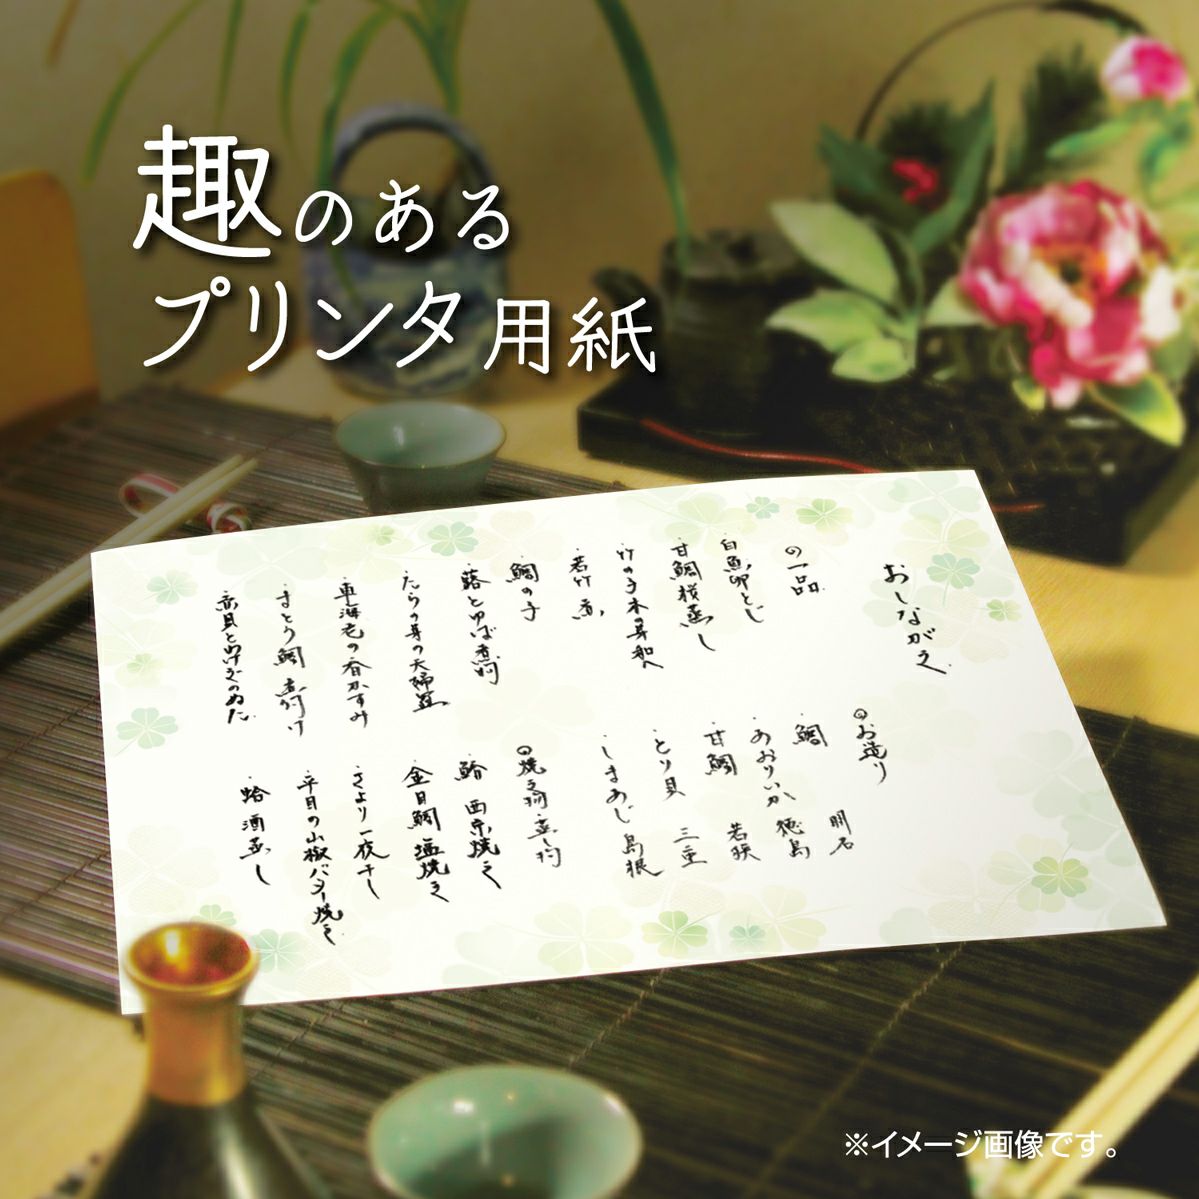 趣のある
プリンタ用紙
おしながき
の一品
白魚卵とじ
・甘鯛桜蒸し
・竹の子木の芽和へ
・若竹煮
鯛の子
・蕗とゆば煮物
・たらの芽の天婦羅
・車海老の春かすみ
・まとう鯛煮付け
・赤貝とわけぎのぬた
◎お造り
・鯛 明石
・あおりいか 徳島
・甘鯛 若狭
・とり貝 三重
・しまあじ 島根
◎焼き物・蒸し物
・鮨 西京焼き
・金目鯛塩焼き
・さより一夜干し
・平目の山椒バター焼き
・蛤酒蒸し
※イメージ画像です。